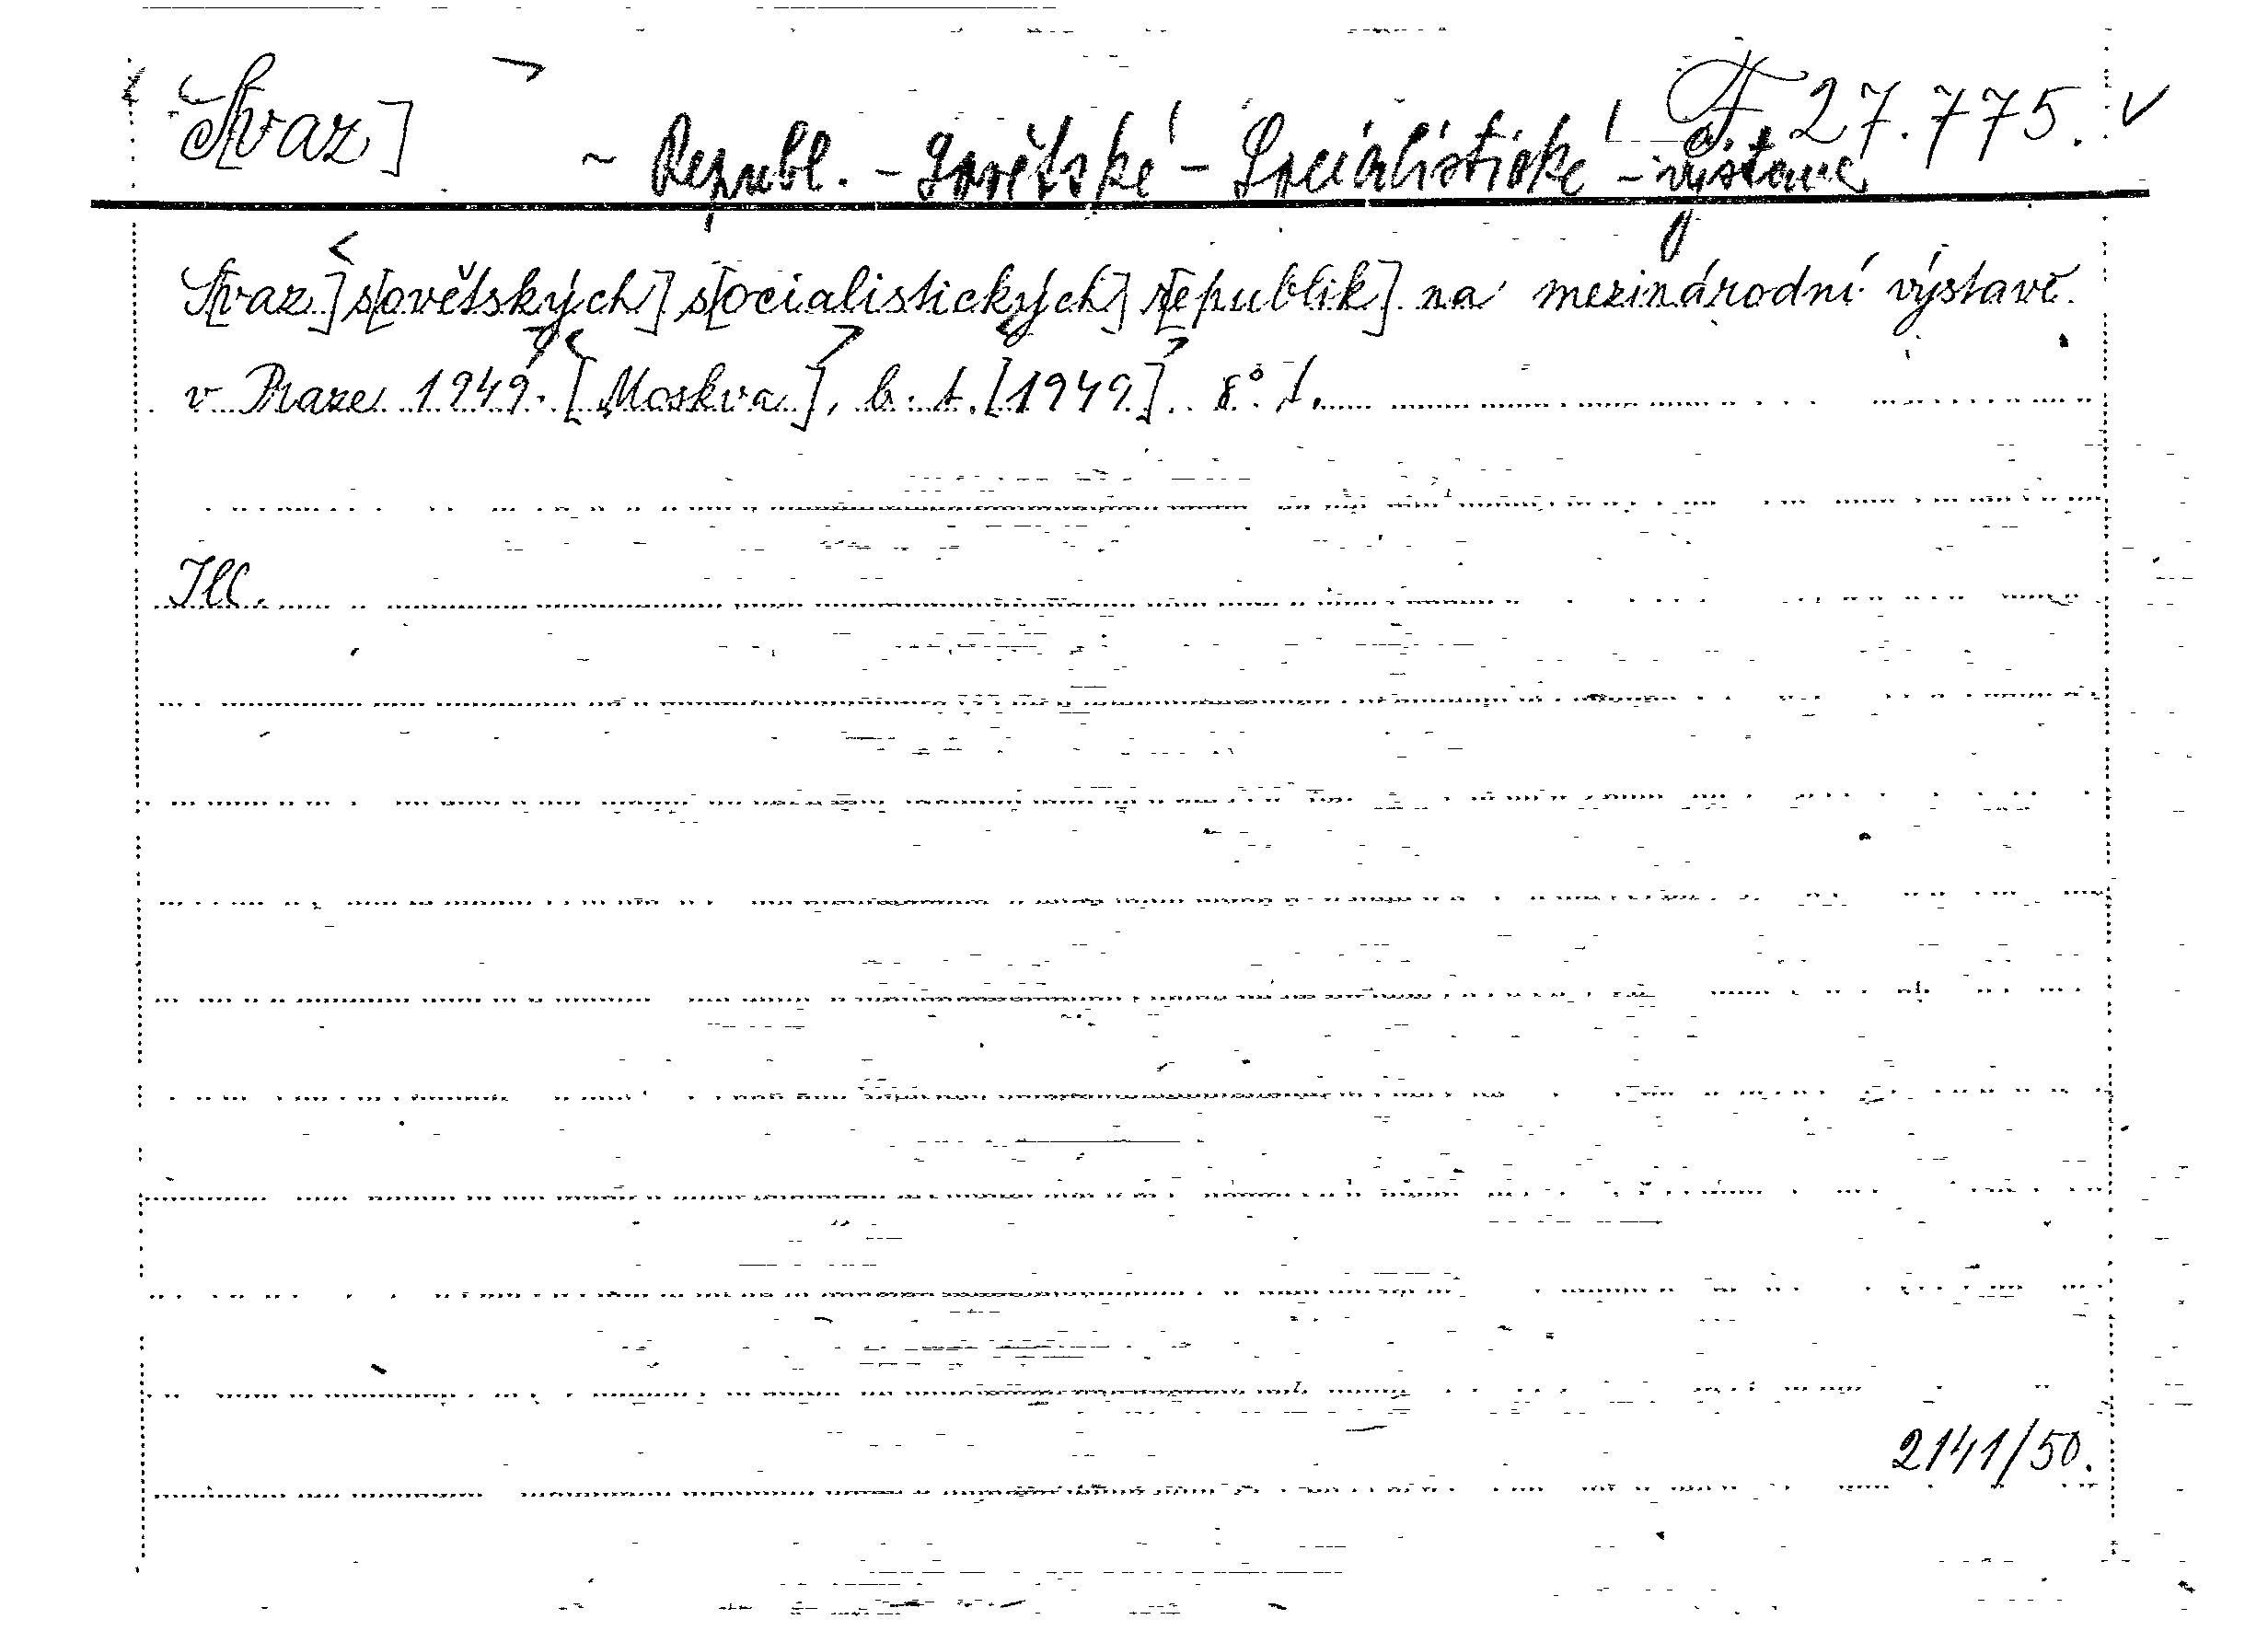 S[vaz] F 27.775.
~ Republ. - Sovětské - Socialistické - výstava
S[vaz] s[ovětských] s[ocialistických] r[epublik] na mezinárodní výstavě
v Praze 1949. [Moskva], b. t. [1949]. 8°.
Ill.
2141/50.